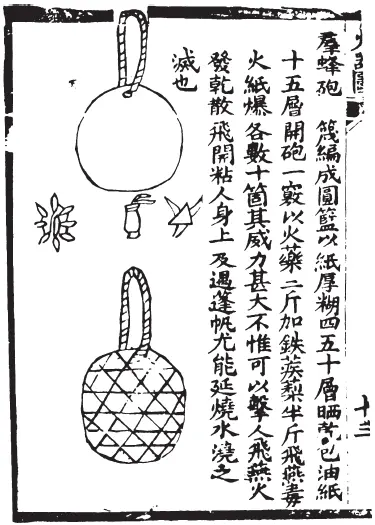 羣蜂砲 篾編成圓籃以紙厚糊四五十層晒乾包油紙
十五層開砲一竅以火藥二斤加鉄蒺梨半斤飛燕毒
火紙爆各數十箇其威力甚大不惟可以擊人飛燕火
發乾散飛開粘人身上及遇蓬帆尤能延燒水澆之
滅也